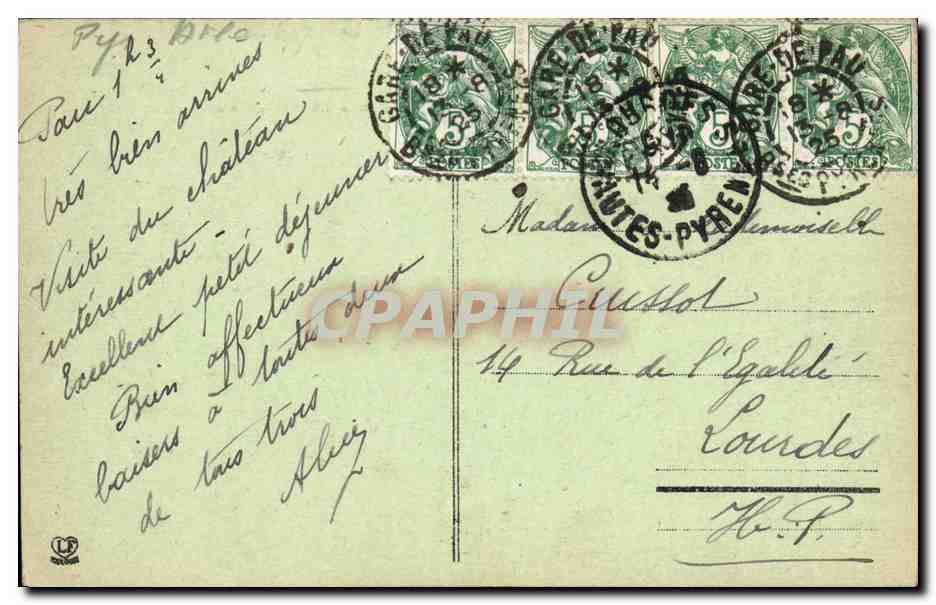 Pau 1h 3/4
très bien arrivés
Visite du château
intéressante -
Excellent petit déjeuner
Bien affectueux
baisers à toutes deux
de tous trois
GARE-DE-PAU
18 * 8
GARE-DE-PAU
18 *
GARE-DE-PAU
18 *
13 - 8
26
HAUTES-PYREN
5c
POSTES
5
POSTES
5
POSTES
Madame
Cuissot
14 Rue de l'Egalité
Lourdes
H. P.
CPAPHIL
LF